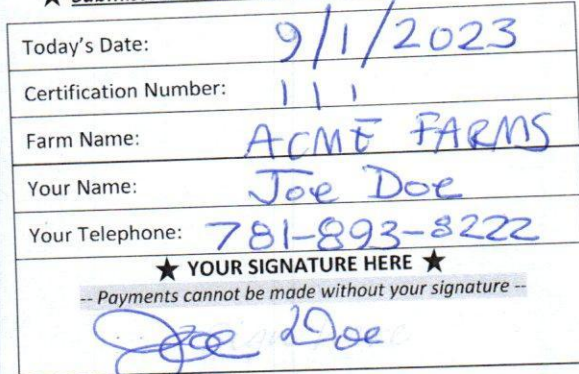 Today's Date: 9/1/2023
Certification Number: 111
Farm Name: ACME FARMS
Your Name: Joe Doe
Your Telephone: 781-893-8222
★ YOUR SIGNATURE HERE ★
-- Payments cannot be made without your signature --
Joe Doe